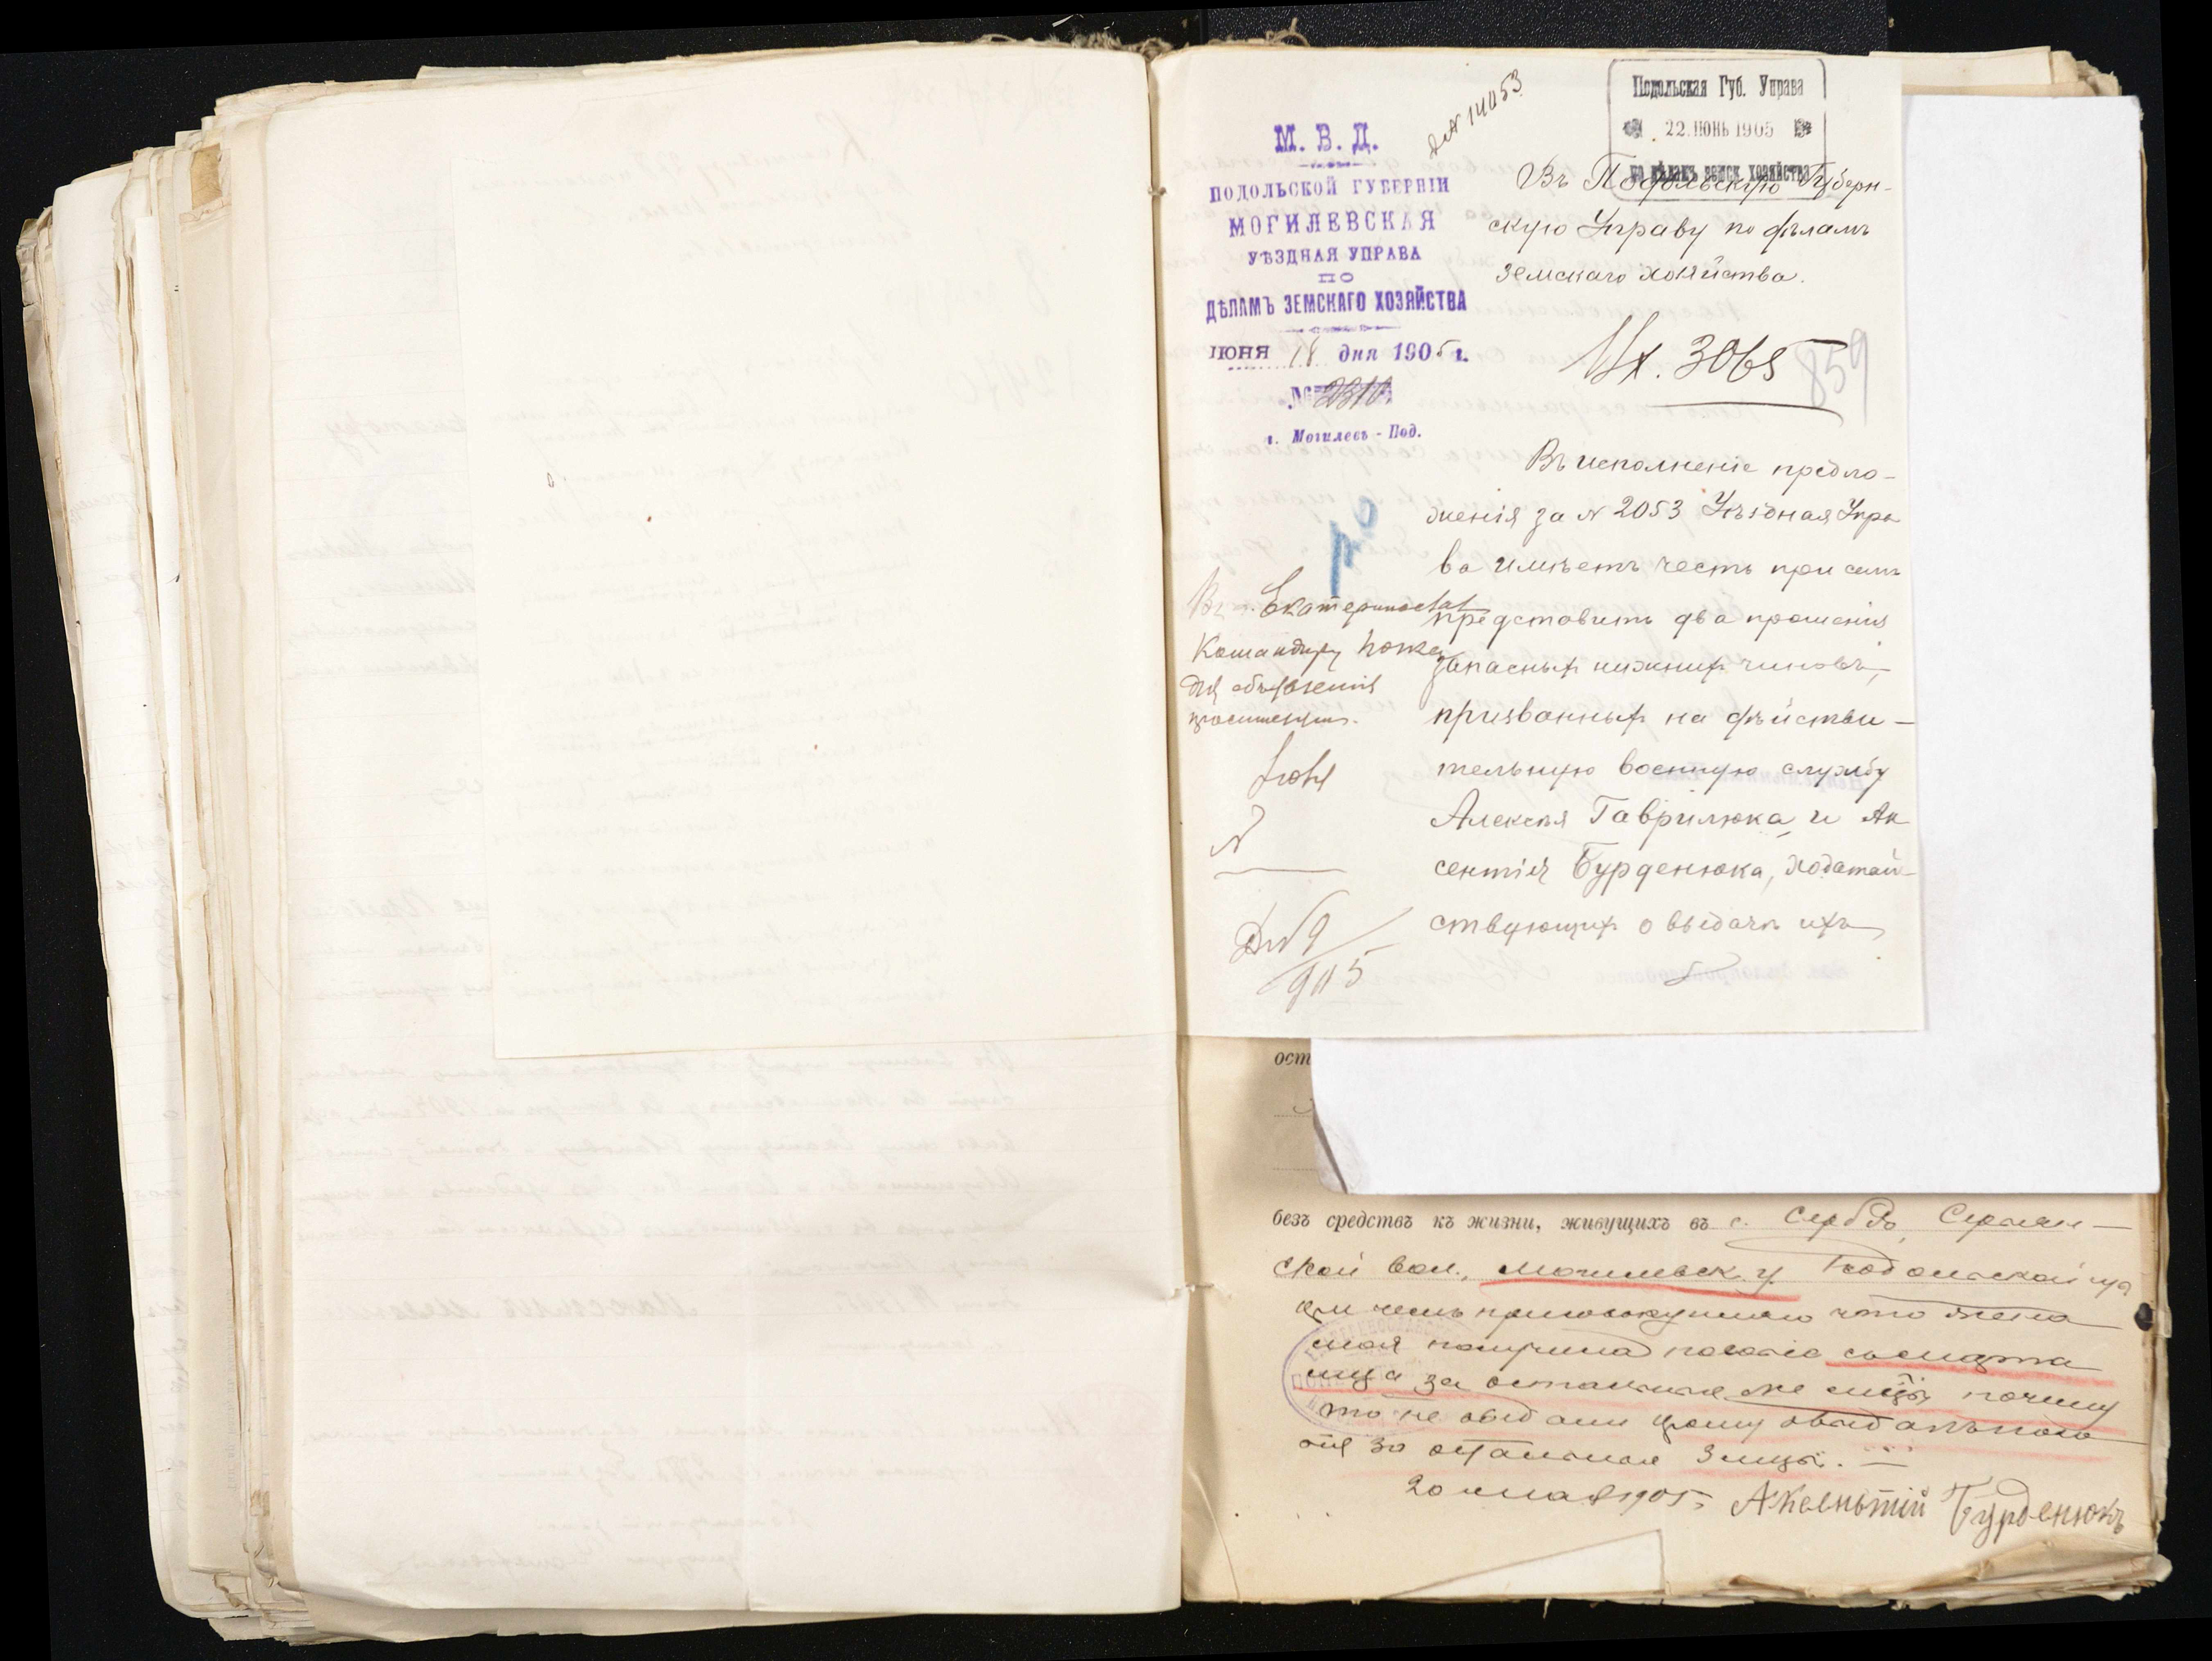 М. В. Д.
ПОДОЛЬСКОЙ ГУБЕРНІИ
МОГИЛЕВСКАЯ
УѢЗДНАЯ УПРАВА
ПО
ДѢЛАМЪ ЗЕМСКАГО ХОЗЯЙСТВА
ІЮНЯ 18 дня 1905 г.
№ 2310.
г. Могилевъ - Под.
14053
Подольская Губ. Управа
22. ІЮНЬ 1905
по дѣламъ земск. хозяйства
Въ Подольскую Губерн-
скую Управу по дѣламъ
Земскаго хозяйства.
Вх. 3065
859
Въ исполненіе предло-
женія за № 2053 Уѣздная Упра
ва имѣетъ честь при семъ
представить два прошенія
запасныхъ нижнихъ чиновъ,
призванныхъ на дѣйстви-
тельную военную службу
Алексѣя Гаврилюка и Ак
сентія Бурденюка, ходатай-
ствующихъ о выдачѣ ихъ
Въ г. Екатеринослав
Командиру
для объявленія
просителямъ.
№
905
ост
безъ средствъ къ жизни, живущихъ въ с. Сербы,
ской вол., Могилевск. у Подольской
что жена
моя получила пособіе
за остальные же почему
то не
за остальные 3
20 мая 1905 г. Аксеньтій Бурденюкъ